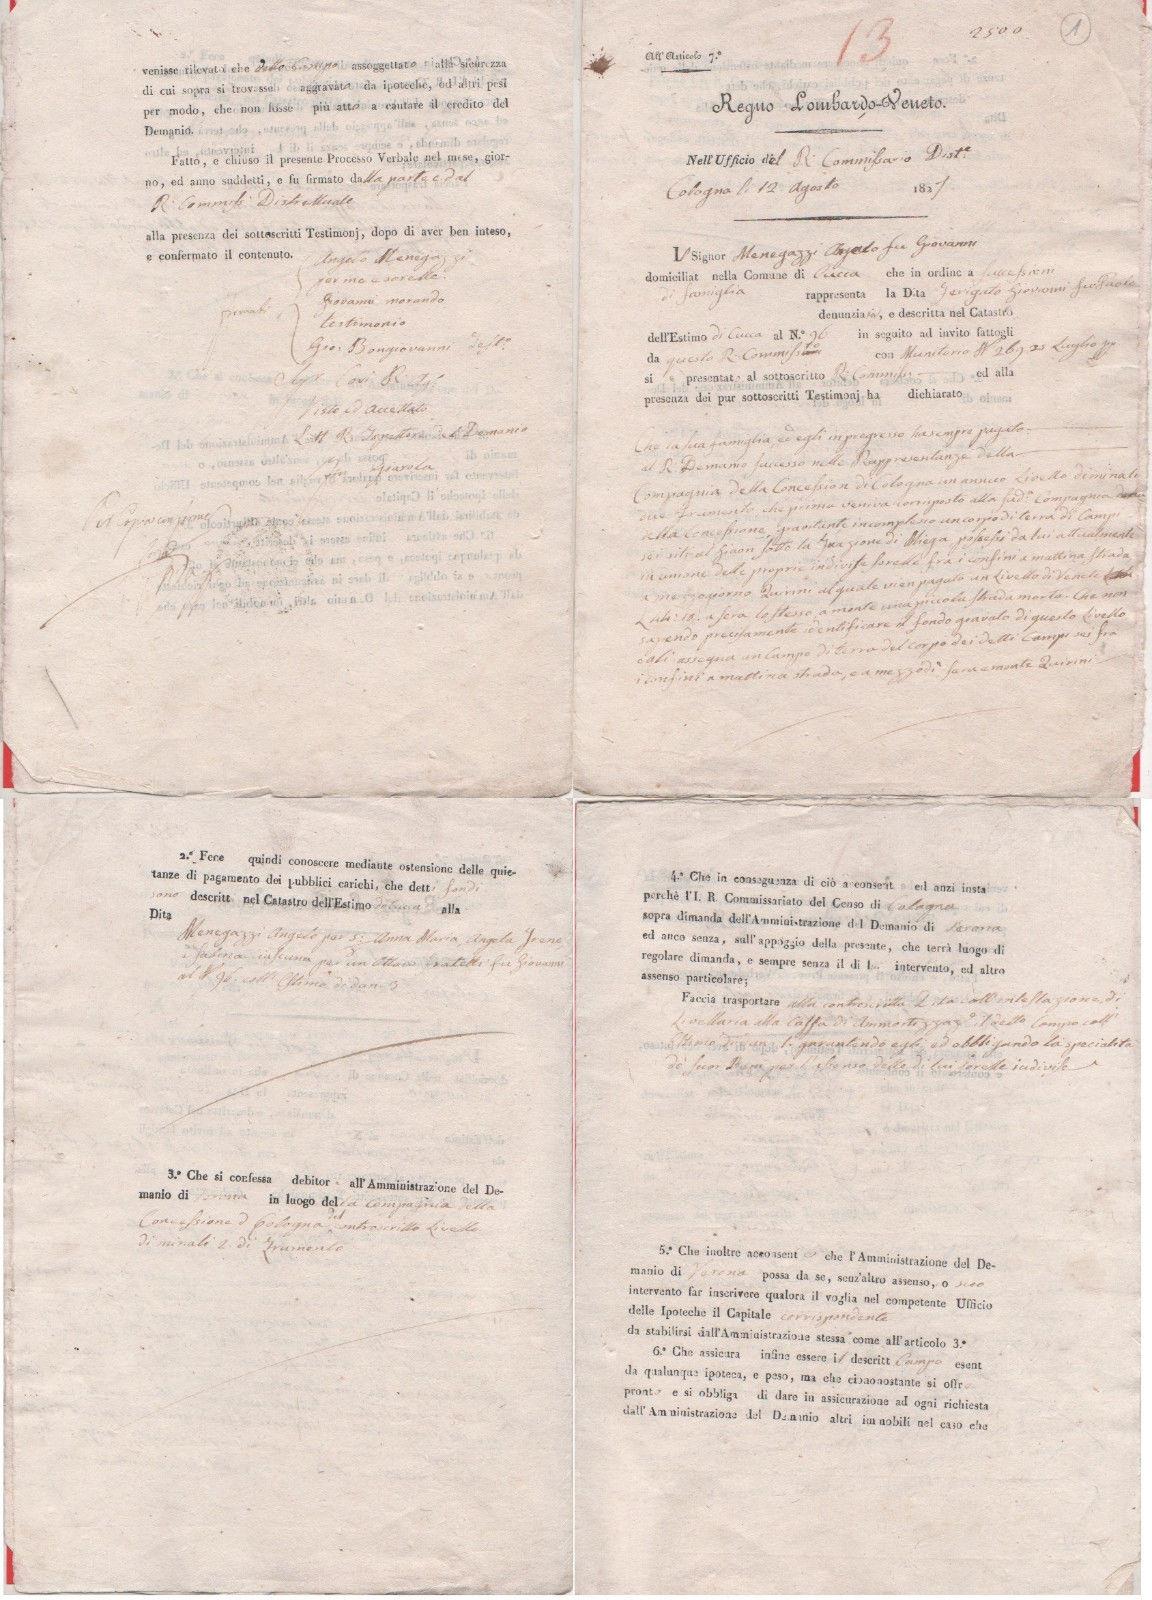 venisse rilevato che detto Campo assoggettato alla sicurezza
di cui sopra si trovasse aggravato da ipoteche, od altri pesi
per modo, che non fosse più atto a cautare il credito del
Demanio.
Fatto, e chiuso il presente Processo Verbale nel mese, gior-
no, ed anno suddetti, e fu firmato dalla parte e dal
R. Commiss. Distrettuale
alla presenza dei sottoscritti Testimonj, dopo di aver ben inteso,
e confermato il contenuto.
Angelo Menegazzi
per me e sorelle
firmati Giovanni morando
testimonio
Gio: Bongiovanni test.o
Visto ed Accettato
R. Ispettore del Demanio
Per Copia conforme
13
2500
1
All' Articolo 7.º
Regno Lombardo-Veneto.
Nell'Ufficio del R. Commissario Dist.e
Cologna li 12 Agosto 1827
Il Signor Menegazzi Angelo fu Giovanni
domiciliat nella Comune di Cucca che in ordine a successioni
di famiglia rappresenta la Dita Zerigato Giovanni fu Paolo
denunziata, e descritta nel Catastro
dell'Estimo di Cucca al N.º 96 in seguito ad invito fattogli
da questo R. Commiss. con Munitorio N. 269 Luglio
si presentato al sottoscritto R. Commiss. ed alla
presenza dei pur sottoscritti Testimonj ha dichiarato
Che la sua famiglia, ed egli in progresso ha sempre pagato
al R. Demanio successo nelle Rappresentanze della
Compagnia della Concession di Cologna un annuo Livello di minali
due Frumento, che prima veniva corrisposto alla sud.a Compagnia
della Concessione, gravitante in complesso un corpo di terra di Campi
sei siti al Giaon sotto la Frazione di Miega, possessi da lui attualmente
in unione delle proprie indivise sorelle fra i confini a mattina strada
a mezzogiorno Quirini al quale vien pagato un Livello di Venete
a sera lo stesso, a monte una piccola strada morta. Che non
sapendo precisamente identificare il fondo gravato di questo Livello
egli assegna un Campo di terra del corpo dei detti Campi sei fra
i confini a mattina strada, e a mezzodì sera e monte Quirini
2.º Fece quindi conoscere mediante ostensione delle quie-
tanze di pagamento dei pubblici carichi, che detti fondi
sono descritt nel Catastro dell'Estimo di Cucca alla
Dita
Menegazzi Angelo per 5: Anna Maria, Angela, Irene,
ciascuna per un Ottavo fratelli fu Giovanni
al N. 96. coll' Estimo di dan. 3
3.º Che si confessa debitor all'Amministrazione del De-
manio di Verona in luogo della Compagnia della
Concessione di Cologna del controscritto Livello
di minali 2. di Frumento
4.º Che in conseguenza di ciò a consent ed anzi insta
perchè l'I. R. Commissariato del Censo di Cologna
sopra dimanda dell'Amministrazione del Demanio di Verona
ed anco senza, sull'appoggio della presente, che terrà luogo di
regolare dimanda, e sempre senza il di lui intervento, ed altro
assenso particolare;
Faccia trasportare alla controscritta Dita coll'intestazione di
Livellaria alla Cassa di Ammortizzaz.e il detto Campo coll'
Estimo di dan. 1. garantendo egli, ed obbligando la specialità
de' suoi Beni per l'assenso delle di lui sorelle indivise
5.º Che inoltre acconsente che l'Amministrazione del De-
manio di Verona possa da se, senz'altro assenso, o suo
intervento far inscrivere qualora il voglia nel competente Ufficio
delle Ipoteche il Capitale corrispondente
da stabilirsi dall'Amministrazione stessa come all'articolo 3.º
6.º Che assicura infine essere il descritt Campo esent
da qualunque ipoteca, e peso, ma che cionnonostante si offre
pronto e si obbliga di dare in assicurazione ad ogni richiesta
dall'Amministrazione del Demanio altri immobili nel caso che